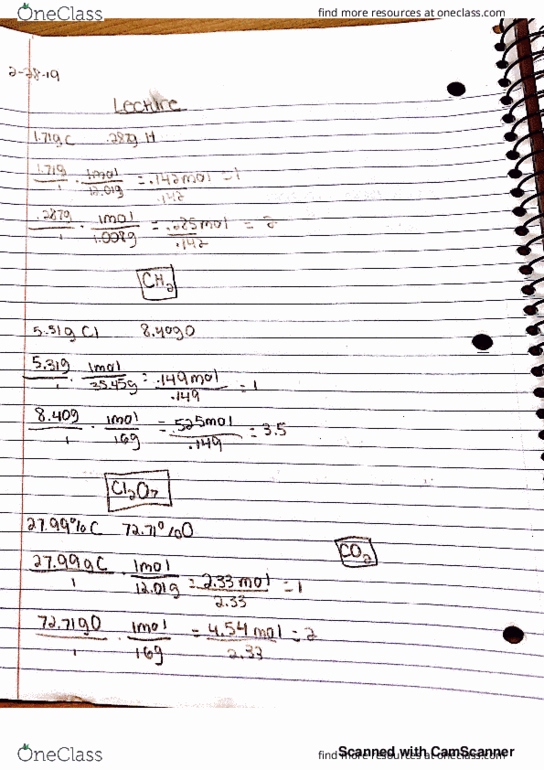 OneClass find more resources at oneclass.com
2-28-19
Lecture
1.719g C .287g H
1.719/1 · 1mol/12.01g = .142mol/.142 = 1
.287g/1 · 1mol/1.008g = .285mol/.142 = 2
CH₂
5.31g Cl 8.40g O
5.31g/1 · 1mol/35.45g = .149mol/.149 = 1
8.40g/1 · 1mol/16g = .525mol/.149 = 3.5
Cl₂O₇
27.99% C 72.71% O
CO₂
27.99gC/1 · 1mol/12.01g = 2.33mol/2.33 = 1
72.71gO/1 · 1mol/16g = 4.54mol/2.33 = 2
Scanned with CamScanner
OneClass find more resources at oneclass.com